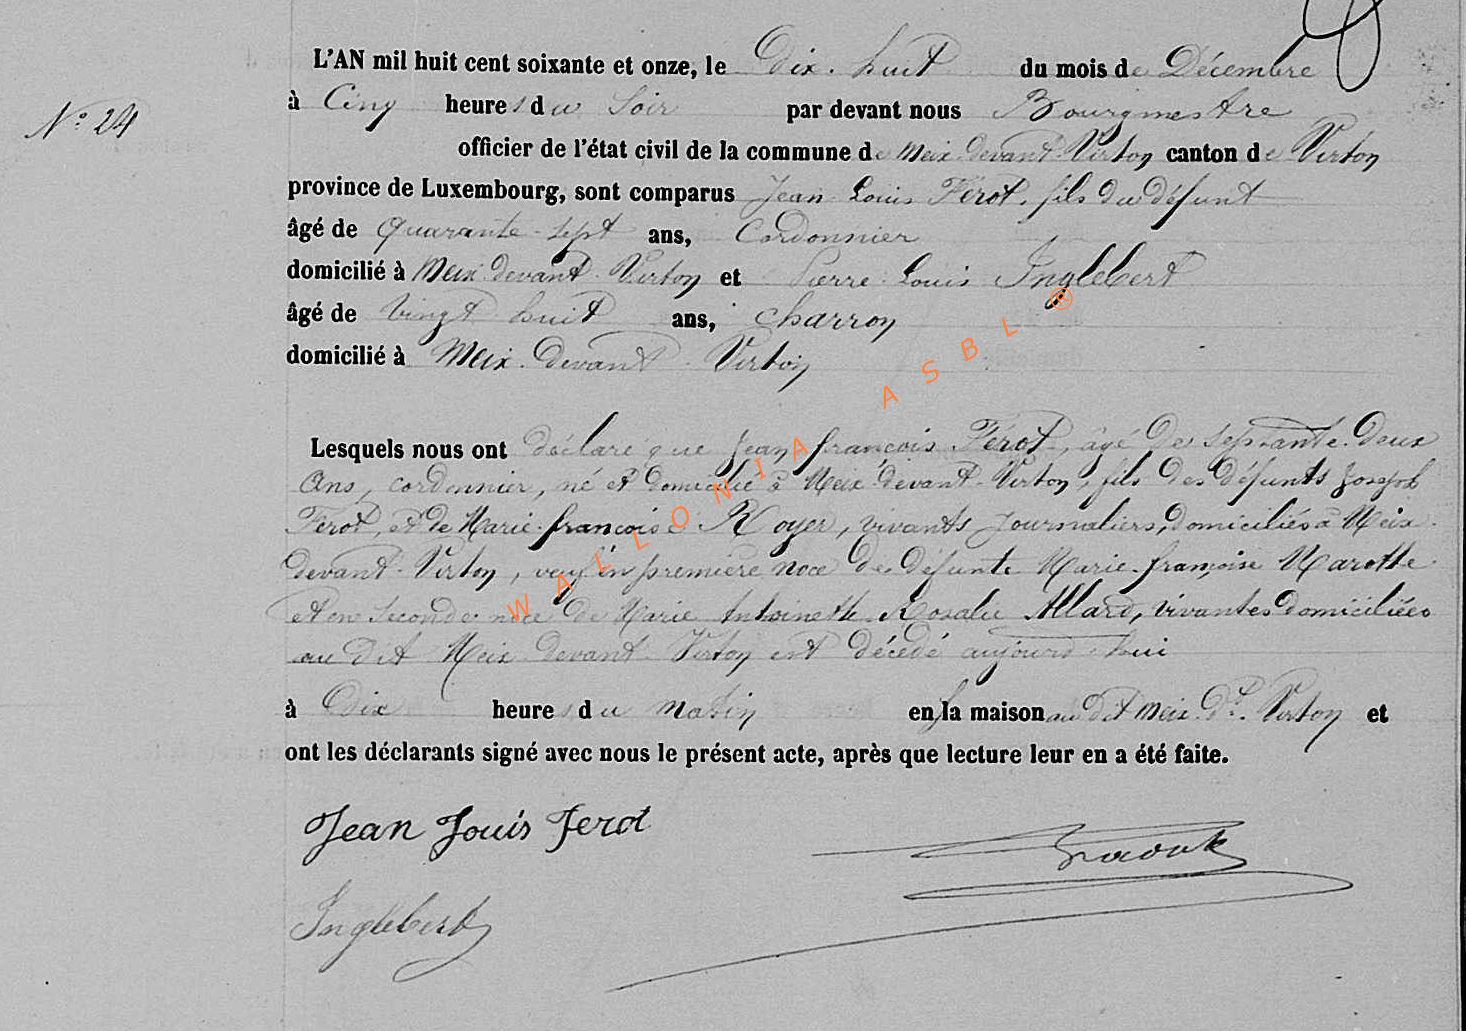 L'AN mil huit cent soixante et onze, le Dix-huit du mois de Décembre
N° 24
à Cinq heures du Soir par devant nous Bourgmestre
officier de l'état civil de la commune de Meix-devant-Virton canton de Virton
province de Luxembourg, sont comparus Jean Louis Férot, fils du défunt
âgé de quarante-sept ans, Cordonnier
domicilié à Meix-devant-Virton et Pierre Louis Inglebert
âgé de Vingt huit ans, charron
domicilié à Meix-devant-Virton
Lesquels nous ont déclaré que Jean françois Férot, âgé de septante-deux
ans, cordonnier, né et domicilié à Meix-devant-Virton, fils des défunts Joseph
Férot, et de Marie-françoise Royer, vivants journaliers, domiciliés à Meix-
devant-Virton, veuf en première noce de défunte Marie-françoise Marotte
et en seconde noce de Marie Antoinette Rosalie Allard, vivantes domiciliées
au dit Meix-devant-Virton est décédé aujourd'hui
à Dix heures du matin en la maison au dit Meix-Dt-Virton et
ont les déclarants signé avec nous le présent acte, après que lecture leur en a été faite.
Jean Louis Ferot
Inglebert
WALLONIA ASBL ®